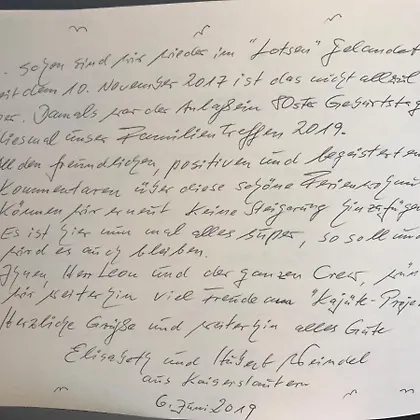 . schon sind wir wieder im "Lotsen" gelandet
eit dem 10. November 2017 ist das nicht allzu
er. Damals war der Anlaß ein 80ster Geburtstag
diesmal unser Familientreffen 2019.
ll den freundlichen, positiven und begeisterten
Kommentaren über diese schöne Ferienwohnun
können wir erneut keine Steigerung hinzufügen
Es ist hier nun mal alles super, so soll und
wird es auch bleiben.
Ihnen, Herr Leon und der ganzen Crew, wün
wir weiterhin viel Freude am "Kajüte-Proje
Herzliche Grüße und weiterhin alles Gute
Elisabeth und Hubert
aus Kaiserslautern
6. Juni 2019